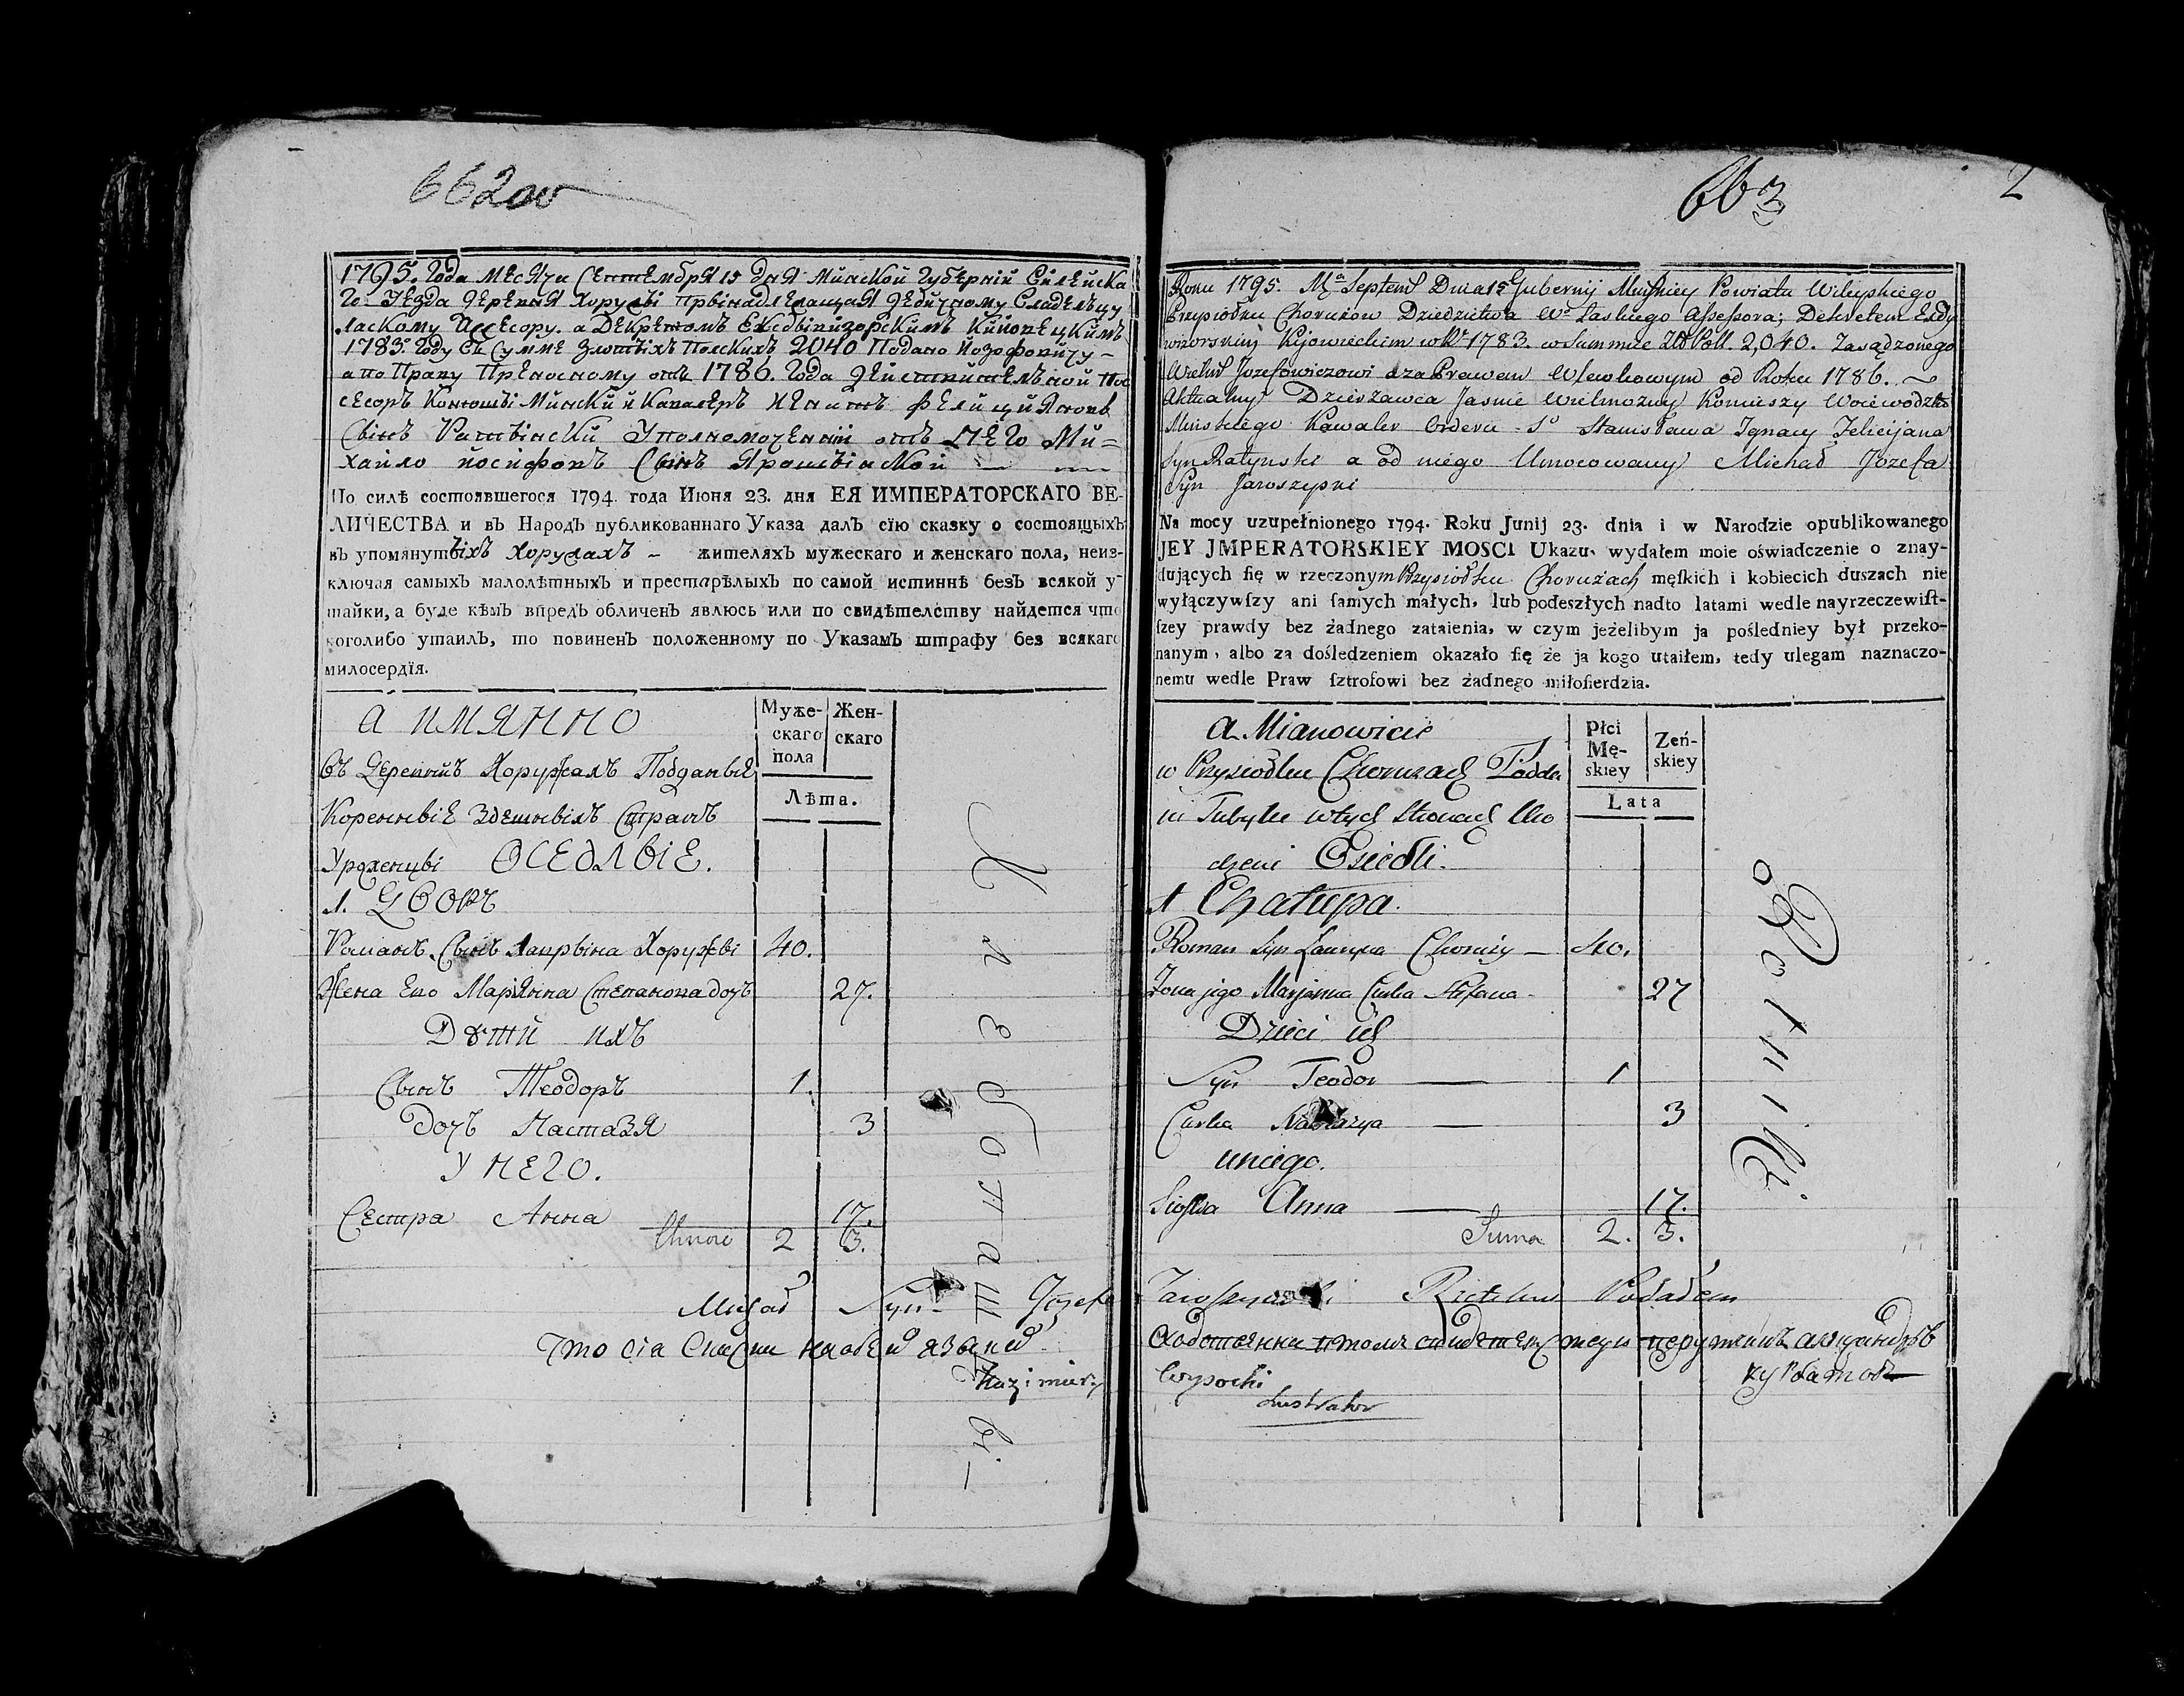 662об
1795. Года Месяца Септембря 15 дня Минской Губерній Вилейска
го Уезда Деревня Хоружі Прынадлежащая Дедичному Владельцу
Ласкому Ассесору. а Декретомъ Ексдывизорскимъ Кийовецкимъ
1783. Году въ Сумме Злотыхъ Полскихъ 2040 Подано Йозефовичу –
а по Праву Преносному отъ 1786. Года Действительной Пос
сесоръ Конюшы Минский и Кавалеръ Игнатъ Фелицияновъ
Сынъ Ратынски Уполномоченній отъ Него Ми=
хайло Йосифовъ Сынъ Ярошынской
По силѣ состоявшегося 1794. года Июня 23. дня ЕЯ ИМПЕРАТОРСКАГО ВЕ-
ЛИЧЕСТВА и въ Народъ публикованнаго Указа далъ сїю сказку о состоящыхъ
въ упомянутыхъ Хоружахъ – жителяхъ мужескаго и женскаго пола, неиз-
ключая самыхъ малолѣтныхъ и престарѣлыхъ по самой истиннѣ безъ всякой у-
тайки, а буде кѣмъ впредъ обличенъ явлюсь или по свидѣтелству найдется что
коголибо утаилъ, то повиненъ положенному по Указамъ штрафу без всякаго
милосердїя.
а имянно
Муже-
скаго
пола
Жен-
скаго
Лѣта.
Въ Деревнѣ Хоружахъ Подданые
Коренныіе Здешныхъ Странъ
Уроженцы Оседлыіе.
1. Дворъ
Романъ Сынъ Лаврына Хоружы 40.
Жена Его Марянна Степанова дочъ 27.
Дѣти ихъ
Сынъ Теодоръ 1.
Дочъ Настазя 3
У Него.
Сестра Анна 17.
2 3.
Michał Syn Józefa
что сіа Списки на обеи языки
Kazimierz
663
2
Roku 1795. Mca Septem Dnia 15 Gubernij Minskiey Powiatu Wileyskiego
Przysiołku Chorużow Dziedzictwa Wo Laskiego Assessora; Dekretem Exdy
wizorskim Kijowieckim w Rku 1783. w Summie Zło Poll. 2,040. Zasądzonego
Wielm Jozefowiczowi a za Prawem Wlewkowym od Roku 1786.
Aktualny Dzierżawca Jasnie Wielmożny Koniuszy Woiewodztwa
Minskiego Kawaler Orderu So Stanisława Ignacy Felicijana
Syn Ratynski a od niego Umocowany Michał Jozefa
Syn Jaroszynski
Na mocy uzupełnionego 1794. Roku Junij 23. dnia i w Narodzie opublikowanego
JEY JMPERATORSKIEY MOSCI Ukazu, wydałem moie oświadczenie o znay-
dujących się w rzeczonym Przysiołku Chorużach męskich i kobiecich duszach nie
wyłączywszy ani samych małych, lub podeszłych nadto latami wedle nayrzeczewist-
szey prawdy bez żadnego zataienia, w czym jeżelibym ja pośledniey był przeko-
nanym, albo za dośledzeniem okazało się że ja kogo utaiłem, tedy ulegam naznaczo-
nemu wedle Praw sztrofowi bez żadnego miłosierdzia.
a Mianowicie
Płci
Mę-
skiey
Żeń-
skiey
Lata
w Przysiołku Choruzach Podda
ni Tubylce w tych Stronach Uro
dzeni Osiedli.
1 Chałupa.
Roman Syn Ławryna Choruży — 40.
Żona jego Marjanna Curka Stefana 27
Dzieci ich
Syn Teodor — 1
Curka Nastazya — 3
u niego.
Siostra Anna — 17.
Suma 2. 3.
Jaroszynski Podałem
сходственны в томъ свидетельствую
Wysocki
Lustrator